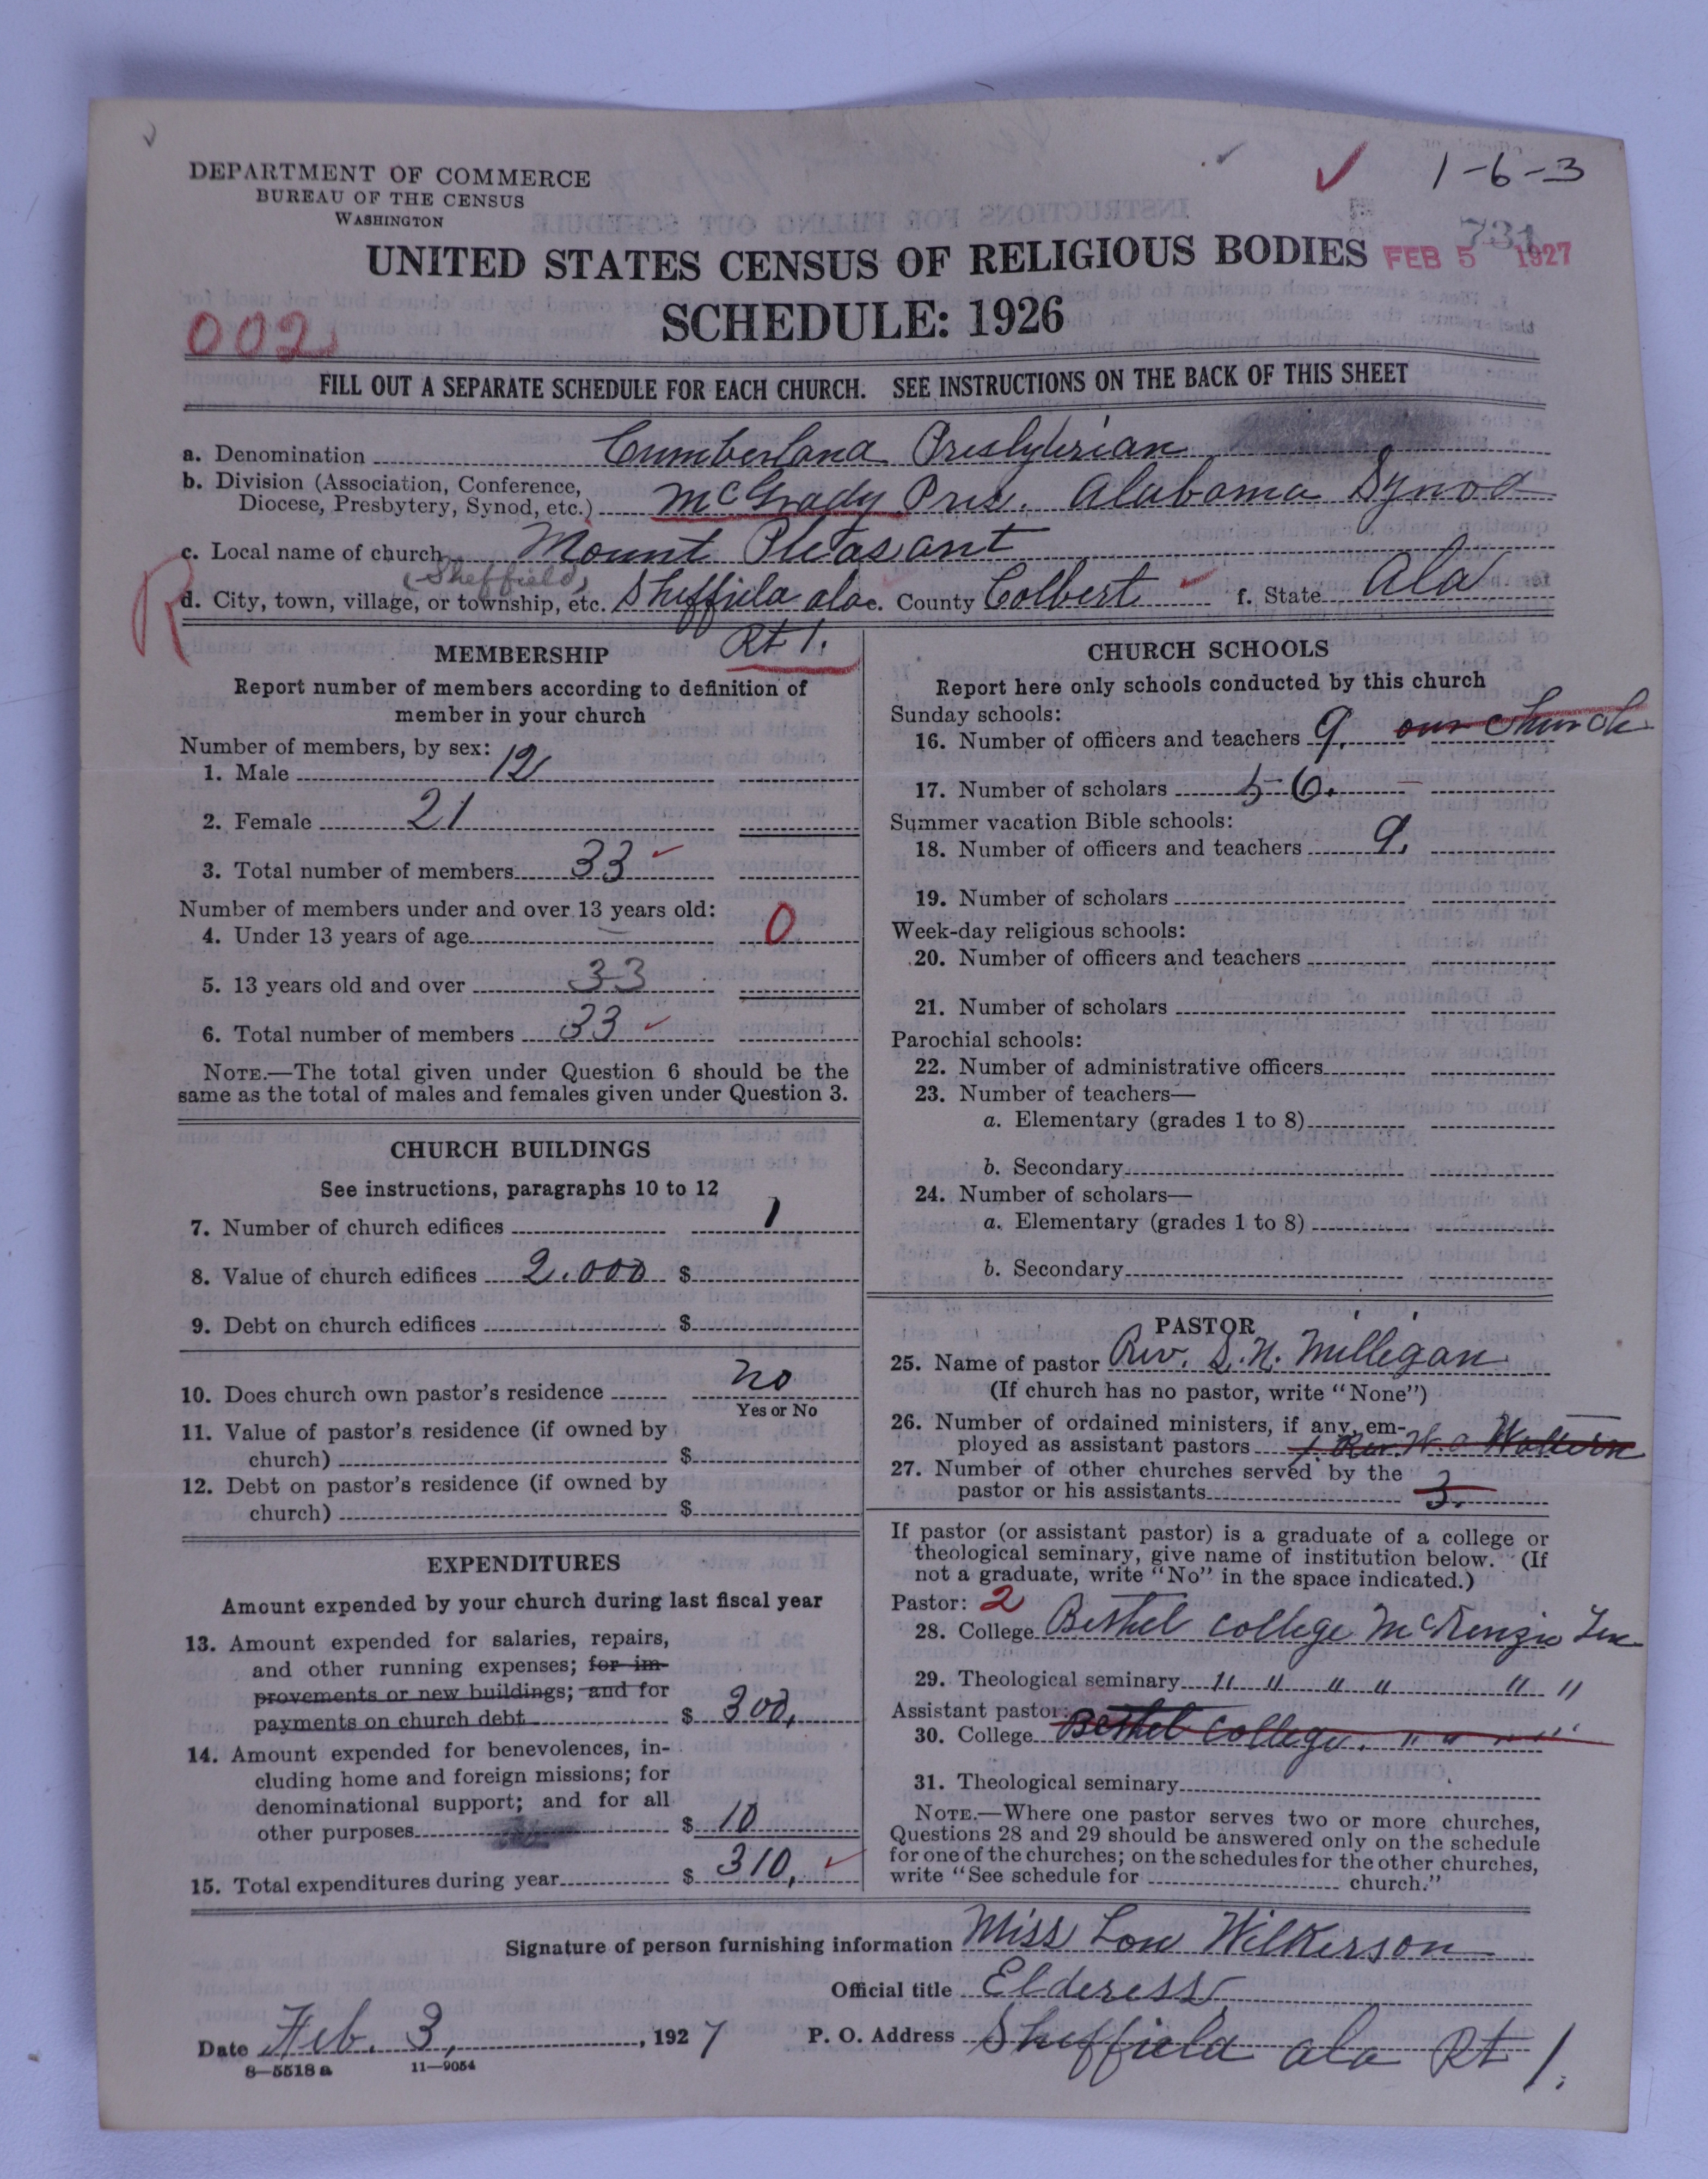 1-6-3
DEPARTMENT OF COMMERCE
BUREAU OF THE CENSUS
WASHINGTON
731
UNITED STATES CENSUS OF RELIGIOUS BODIES FEB 5 1927
SCHEDULE: 1926
002
FILL OUT A SEPARATE SCHEDULE FOR EACH CHURCH. SEE INSTRUCTIONS ON THE BACK OF THIS SHEET
a. Denomination Cumberland Presbyterian
b. Division (Association, Conference, Diocese, Presbytery, Synod, etc.) McGrady Pres. Alabama Synod
c. Local name of church Mount Pleasant
(Sheffield)
R
d. City, town, village, or township, etc. Sheffield ala e. County Colbert f. State Ala
Rt 1.
MEMBERSHIP
Report number of members according to definition of
member in your church
Number of members, by sex:
1. Male 12
2. Female 21
3. Total number of members 33
Number of members under and over 13 years old:
4. Under 13 years of age 0
5. 13 years old and over 33
6. Total number of members 33
NOTE.—The total given under Question 6 should be the
same as the total of males and females given under Question 3.
CHURCH BUILDINGS
See instructions, paragraphs 10 to 12
7. Number of church edifices 1
8. Value of church edifices 2.000 $
9. Debt on church edifices $
10. Does church own pastor's residence no
Yes or No
11. Value of pastor's residence (if owned by
church) $
12. Debt on pastor's residence (if owned by
church) $
EXPENDITURES
Amount expended by your church during last fiscal year
13. Amount expended for salaries, repairs,
and other running expenses; for im-
provements or new buildings; and for
payments on church debt $ 300.
14. Amount expended for benevolences, in-
cluding home and foreign missions; for
denominational support; and for all
other purposes $ 10
15. Total expenditures during year $ 310.
CHURCH SCHOOLS
Report here only schools conducted by this church
Sunday schools:
16. Number of officers and teachers 9. our church
17. Number of scholars 56.
Summer vacation Bible schools:
18. Number of officers and teachers 9.
19. Number of scholars
Week-day religious schools:
20. Number of officers and teachers
21. Number of scholars
Parochial schools:
22. Number of administrative officers
23. Number of teachers—
a. Elementary (grades 1 to 8)
b. Secondary
24. Number of scholars—
a. Elementary (grades 1 to 8)
b. Secondary
PASTOR
25. Name of pastor Rev. S.N. Millegan
(If church has no pastor, write "None")
26. Number of ordained ministers, if any, em-
ployed as assistant pastors 1. Rev.
27. Number of other churches served by the
pastor or his assistants 3.
If pastor (or assistant pastor) is a graduate of a college or
theological seminary, give name of institution below. (If
not a graduate, write "No" in the space indicated.)
Pastor: 2
28. College Bethel college McKenzie Ten
29. Theological seminary " " " " " "
Assistant pastor:
30. College Bethel College. " " " "
31. Theological seminary
NOTE.—Where one pastor serves two or more churches,
Questions 28 and 29 should be answered only on the schedule
for one of the churches; on the schedules for the other churches,
write "See schedule for church."
Signature of person furnishing information Miss Lou Wilkerson
Official title Elderess
Date Feb. 3, 1927 P. O. Address Sheffield ala Rt 1.
8—5518 a 11—9054